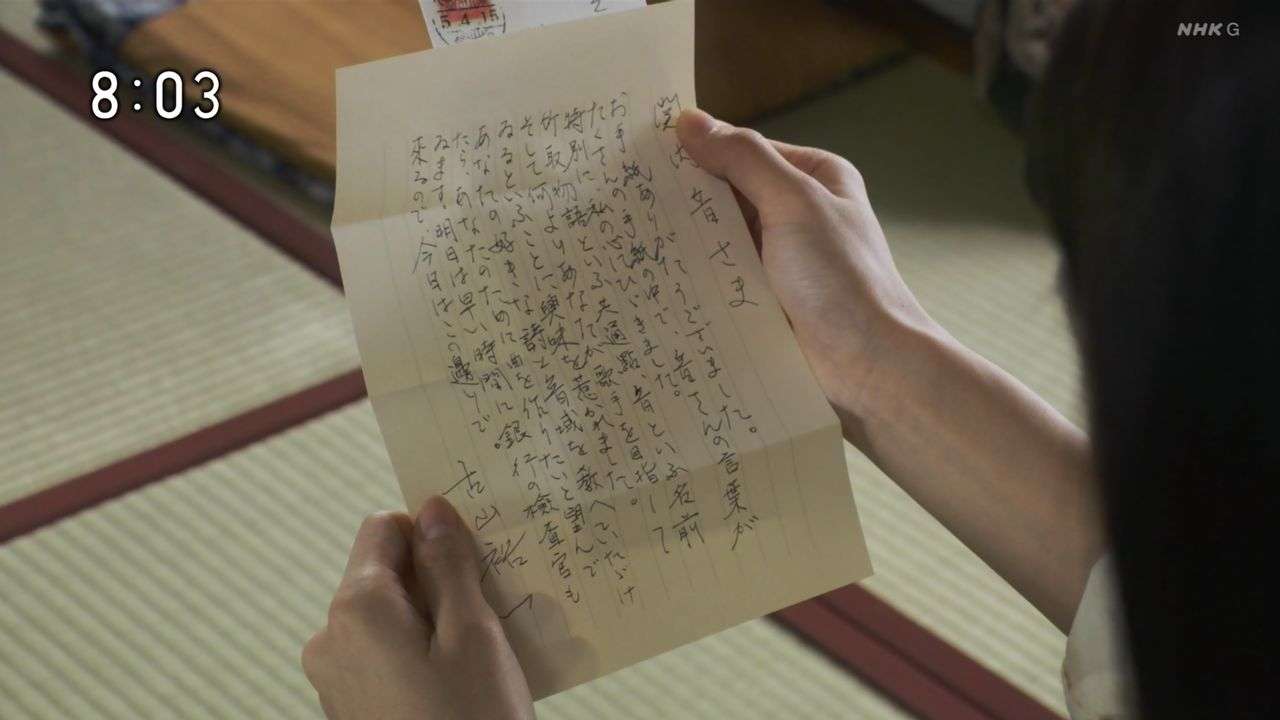 8:03
NHK G
5.4.15
関内 音さま
お手紙ありがたうございました。
たくさんの手紙の中で、音さんの言葉が
特別に私の心にひゞきました。音といふ名前
竹取物語といふ共通點、歌手を目指して
そして何よりあなたが惹かれました。
ゐるといふことに興味を
あなたの好きな詩と音域を教へていたゞけ
たら、あなたのために曲を作りたいと望んで
ゐます。明日は早い時間に銀行の檢査官も
来るので、今日はこの邊りで。
古山裕一